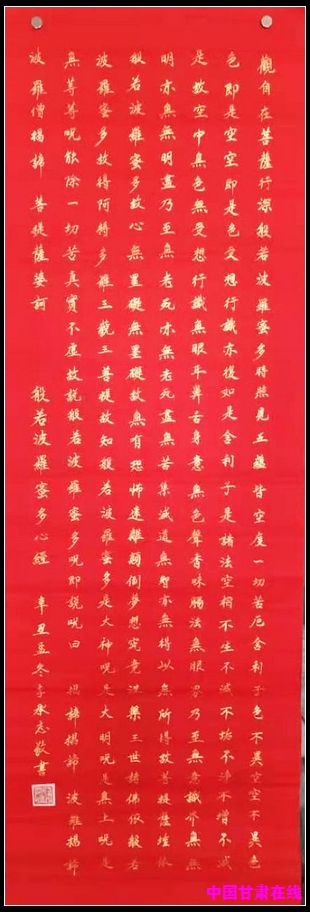 觀自在菩薩行深般若波羅蜜多時照見五蘊皆空度一切苦厄舍利子色不異空空不異色
色即是空空即是色受想行識亦復如是舍利子是諸法空相不生不滅不垢不淨不增不減
是故空中無色無受想行識無眼耳鼻舌身意無色聲香味觸法無眼界乃至無意識界無無
明亦無無明盡乃至無老死亦無老死盡無苦集滅道無智亦無得以無所得故菩提薩埵依
般若波羅蜜多故心無罣礙無罣礙故無有恐怖遠離顛倒夢想究竟涅槃三世諸佛依般若
波羅蜜多故得阿耨多羅三藐三菩提故知般若波羅蜜多是大神呪是大明呪是無上呪是
無等等呪能除一切苦真實不虛故說般若波羅蜜多呪即說呪曰 揭諦揭諦 波羅揭諦
波羅僧揭諦 菩提薩婆訶 般若波羅蜜多心經 辛丑孟冬李承志敬書
中国甘肃在线